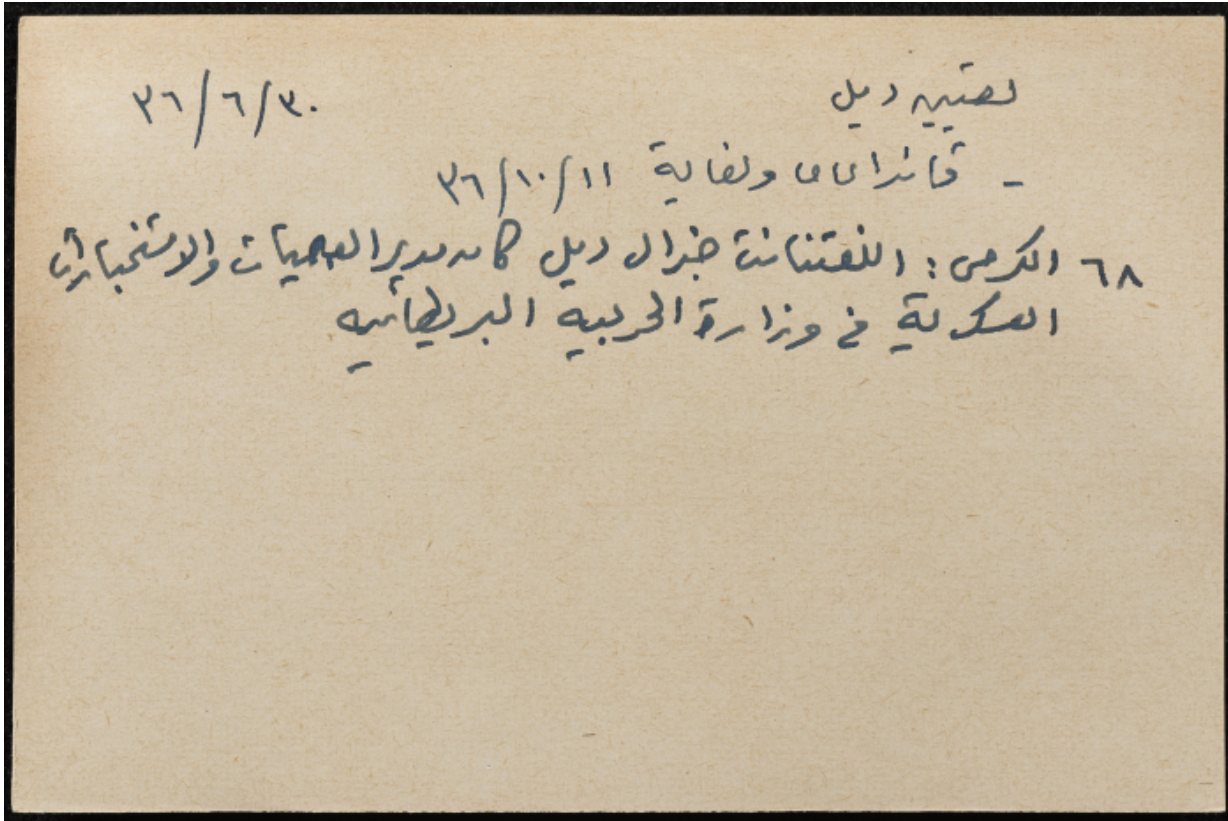 تعيين ديل ٣٠/٦/٣٦
- قائدا ولغاية ١١/١٠/٣٦
٦٨ الكرمي: اللفتنانت جنرال ديل كان مدير العمليات والاستخبارات
العسكرية في وزارة الحربية البريطانية